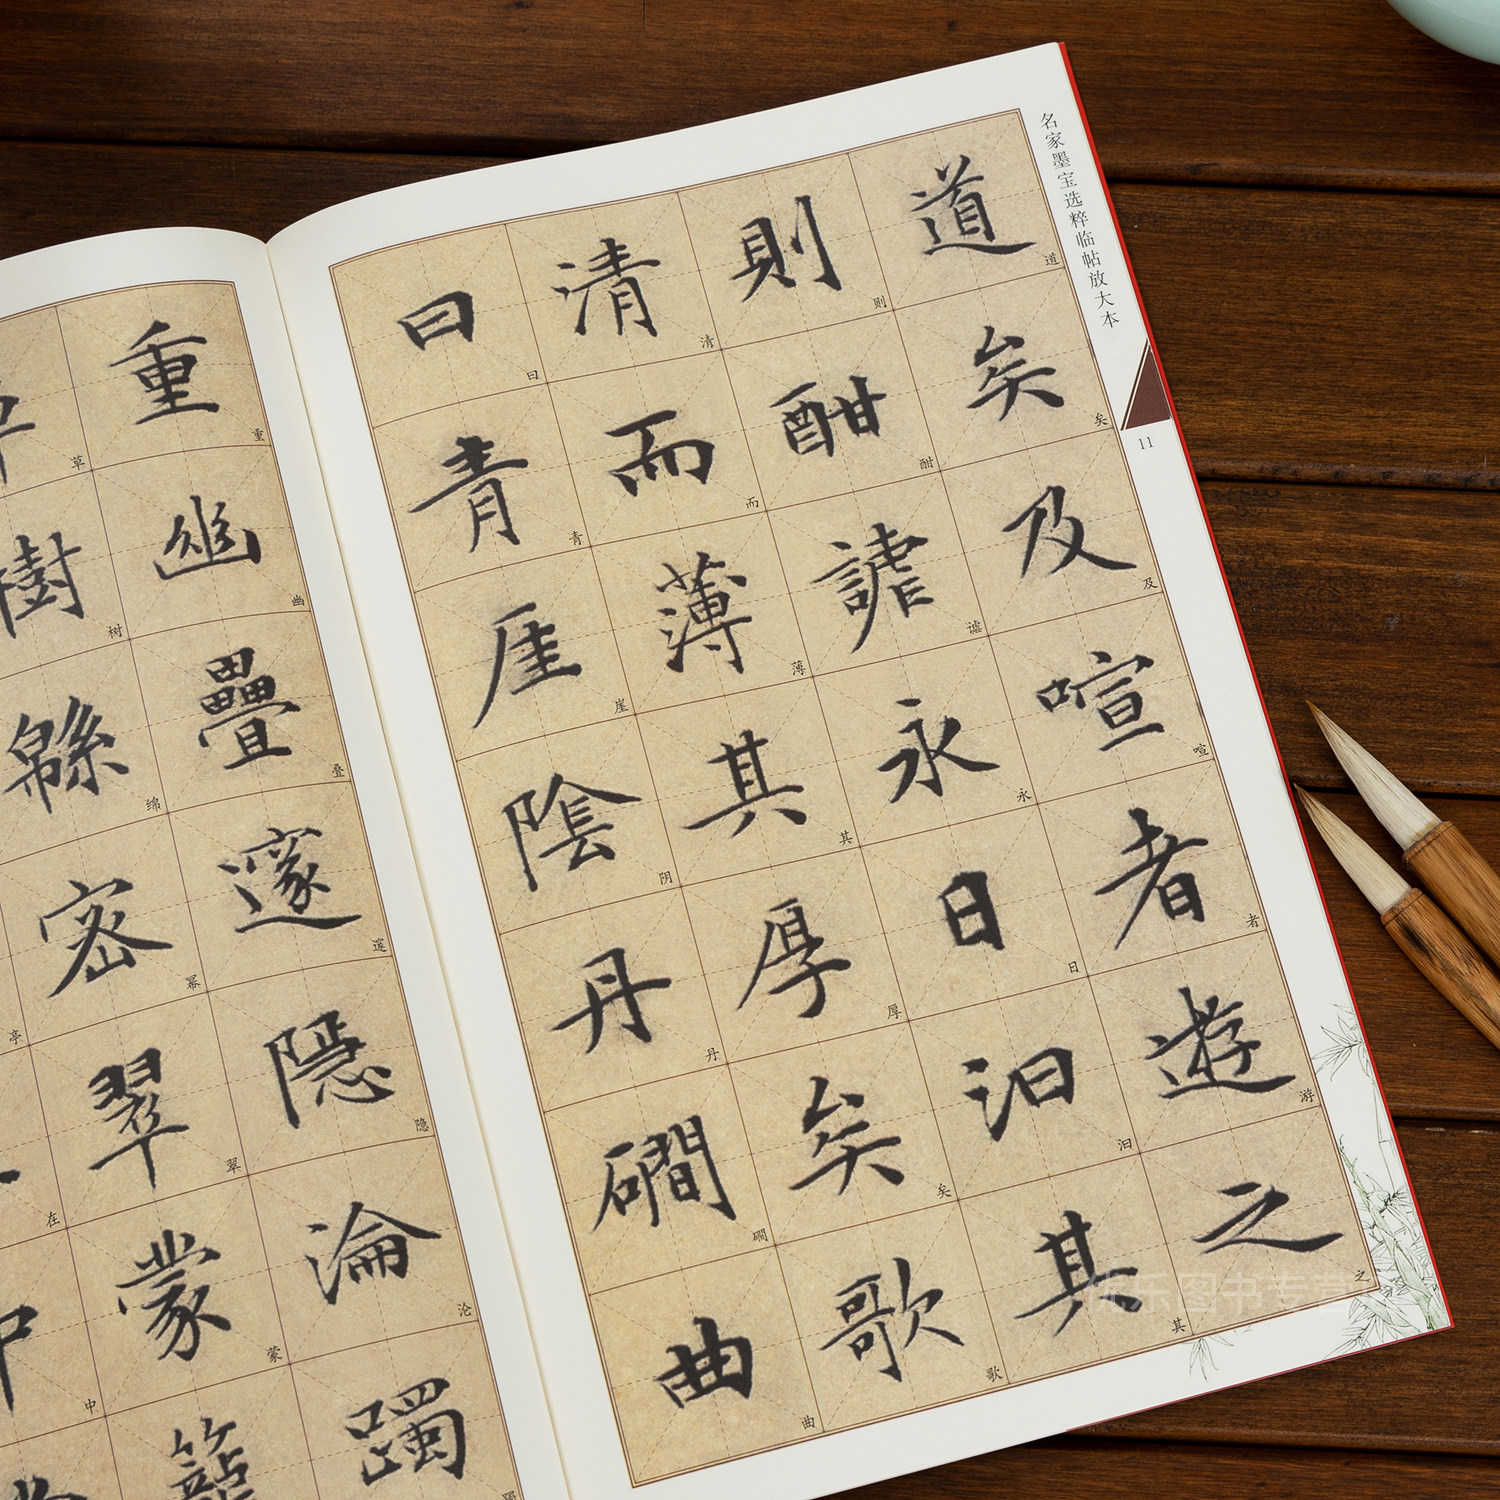 名家墨宝选粹临帖放大本
11
道矣及喧者遊之
道矣及喧者游之
則酣謔永日汨其
则酣谑永日汨其
清而薄其厚矣歌
清而薄其厚矣歌
曰青厓陰丹磵曲
曰青崖阴丹磵曲
重幽疊邃隱淪躅
重幽叠邃隐沦躅
樹緜密翠蒙籠
草树绵幂翠蒙
中
亭在中
乐图书专营